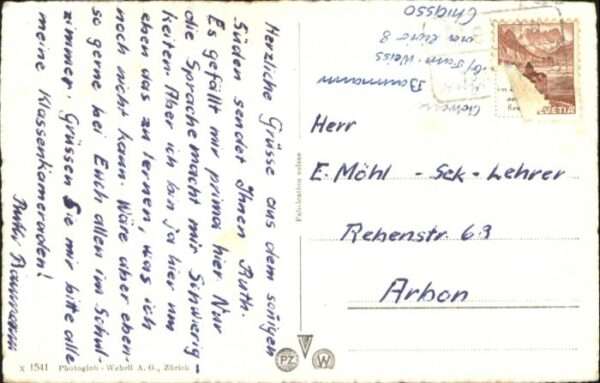 Herzliche Grüsse aus dem sonnigen
Süden sendet Ihnen Ruth.
Es gefällt mir prima hier. Nur
die Sprache macht mir Schwierig-
keiten. Aber ich bin ja hier um
eben das zu lernen, was ich
noch nicht kann. Wäre aber eben-
so gerne bei Euch allen im Schul-
zimmer. Grüssen Sie mir bitte alle
meine Klassenkameraden!
Ruth Baumann
X 1541 Photoglob-Wehrli A. G., Zürich
Fabrication suisse
PZ W
Baumann
b/ Fam. Weiss
Chiasso
HELVETIA
Herr
E. Möhl - Sek - Lehrer
Rebenstr. 63
Arbon